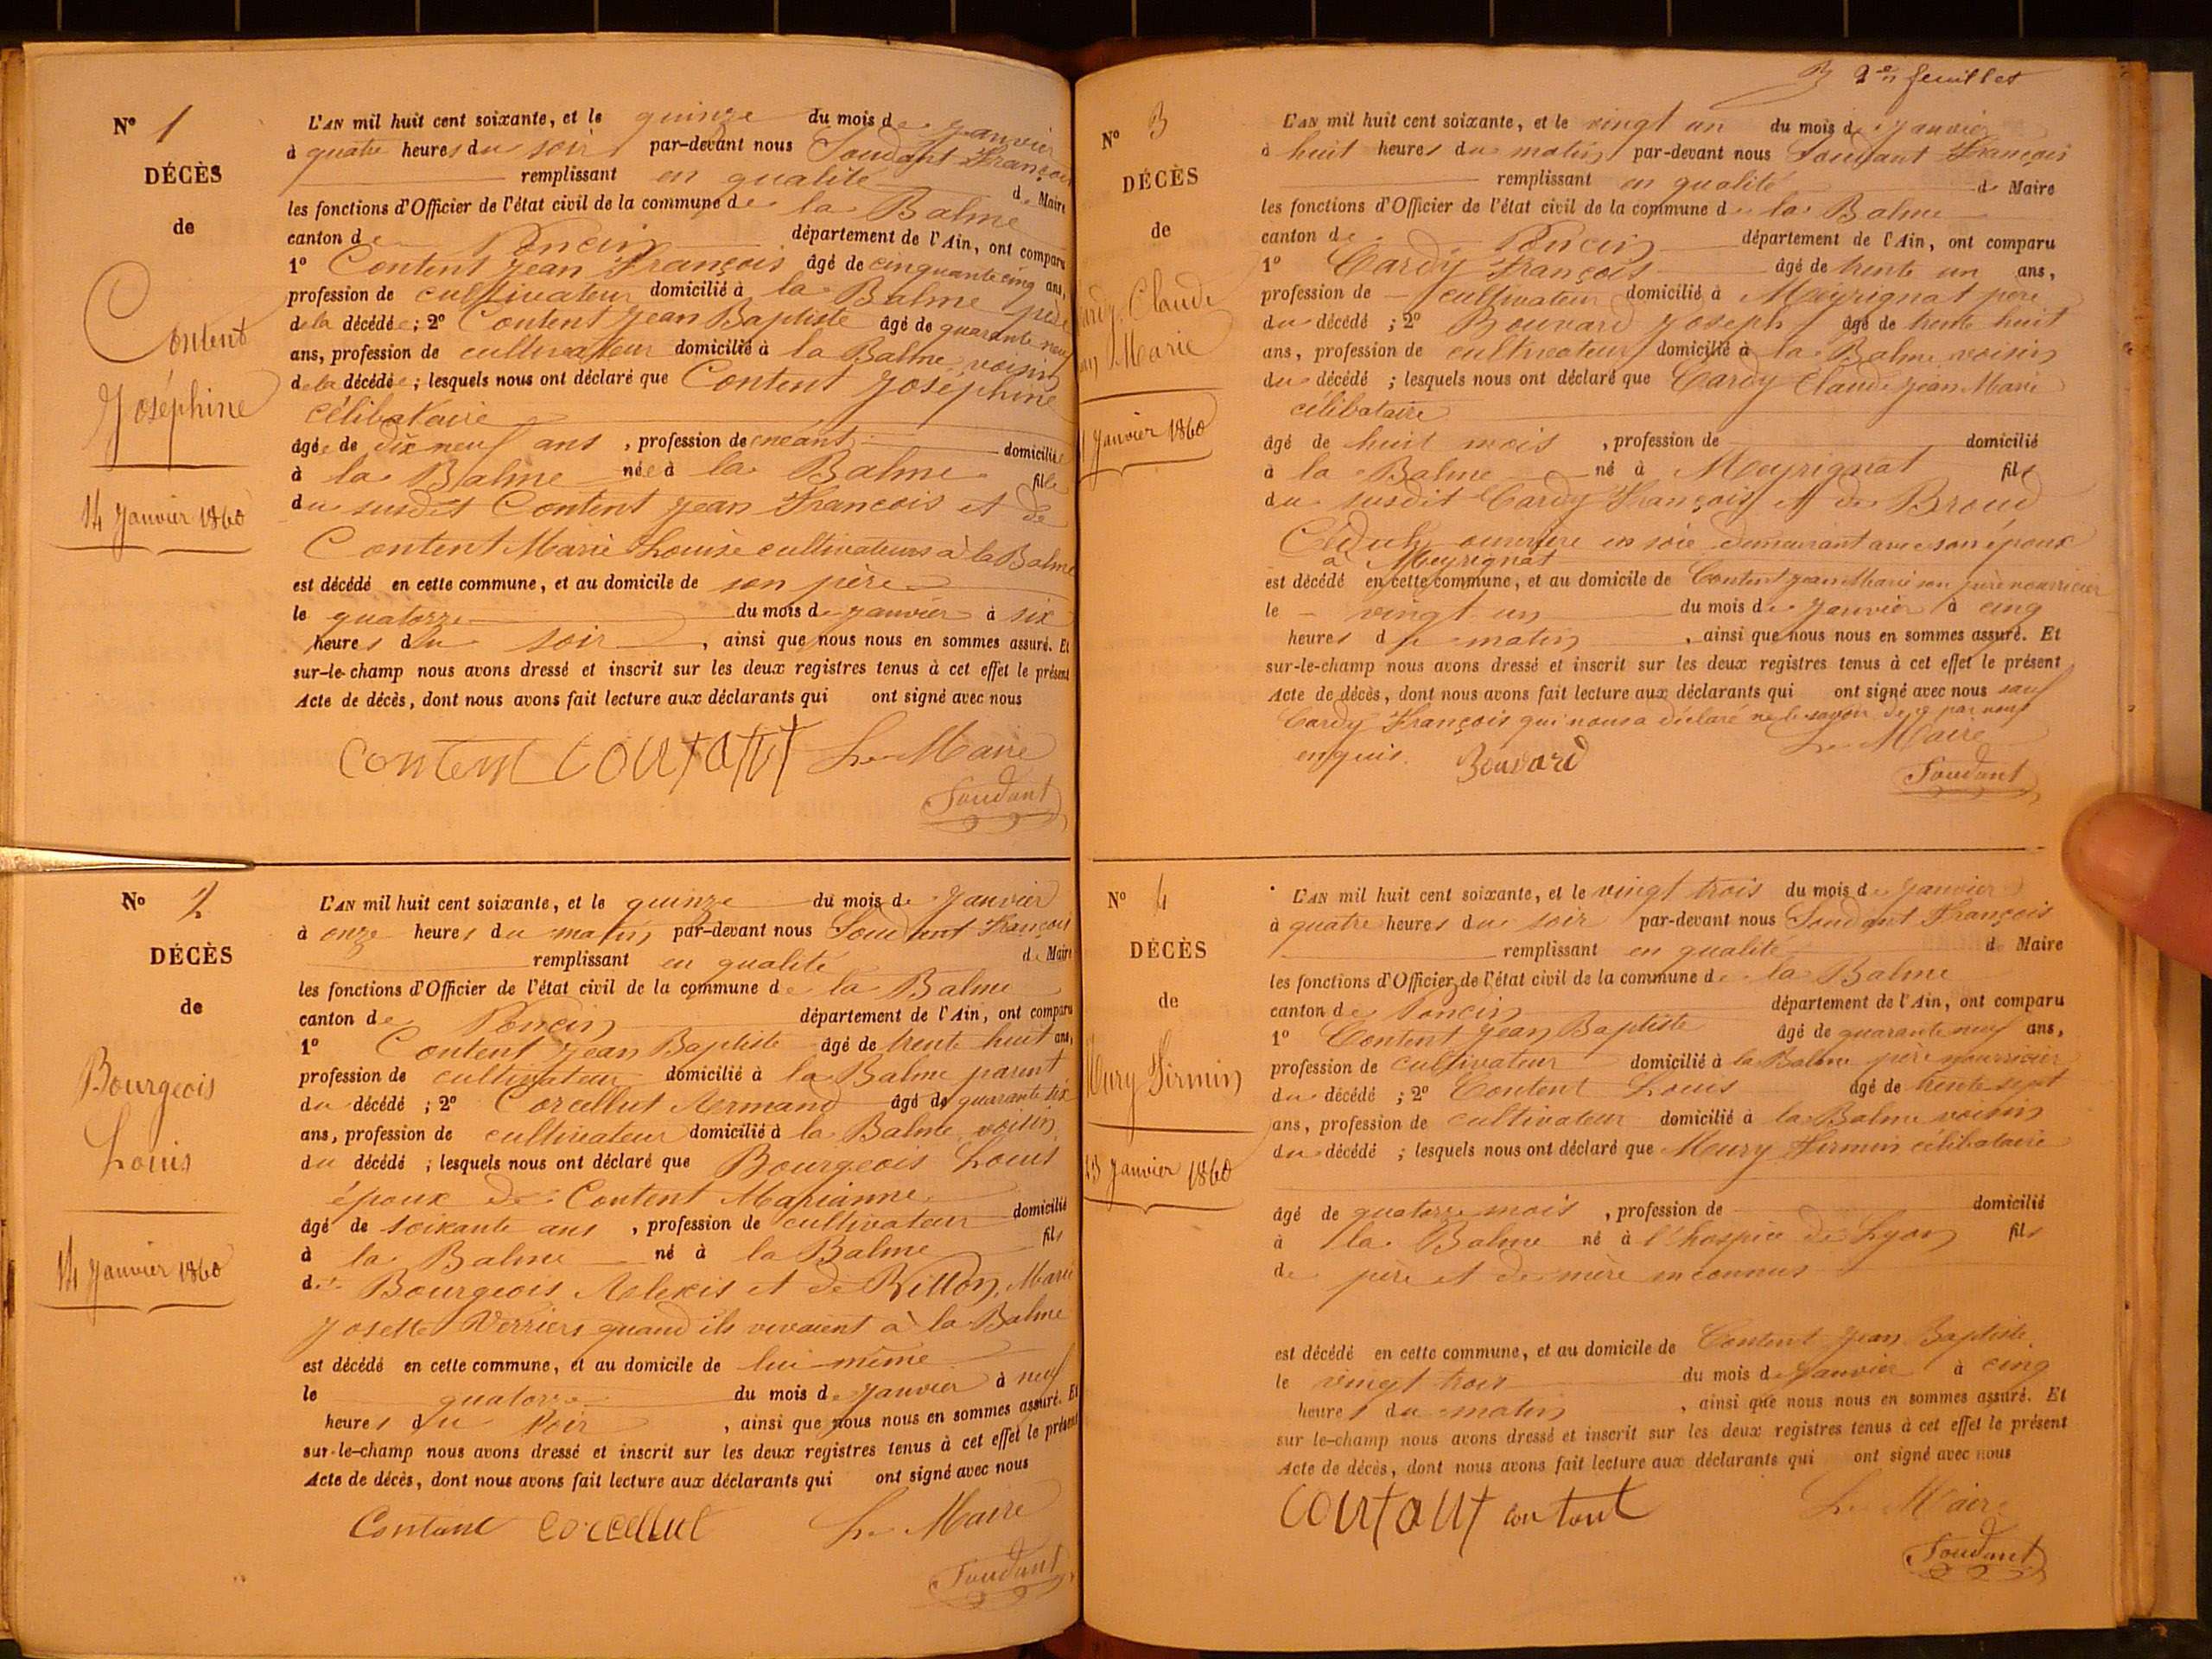 N° 1
DÉCÈS
de
Content
Joséphine
14 Janvier 1860
L'AN mil huit cent soixante, et le quinze du mois de Janvier
à quatre heures du soir par-devant nous Soudant François
remplissant en qualité de Maire
les fonctions d'Officier de l'état civil de la commune de la Balme
canton de Poncin département de l'Ain, ont comparu
1° Content Jean François âgé de cinquante cinq ans,
profession de cultivateur domicilié à la Balme père
de la décédée ; 2° Content Jean Baptiste âgé de quarante neuf
ans, profession de cultivateur domicilié à la Balme voisin
de la décédée ; lesquels nous ont déclaré que Content Joséphine
célibataire
âgée de dix neuf ans , profession de néant domiciliée
à la Balme née à la Balme fille
du susdit Content Jean François et de
Content Marie Louise cultivateurs à la Balme
est décédé en cette commune, et au domicile de son père
le quatorze du mois de Janvier à six
heures du soir , ainsi que nous nous en sommes assuré. Et
sur-le-champ nous avons dressé et inscrit sur les deux registres tenus à cet effet le présent
Acte de décès, dont nous avons fait lecture aux déclarants qui ont signé avec nous
Content Le Maire
Soudant
N° 2
DÉCÈS
de
Bourgeois
Louis
14 Janvier 1860
L'AN mil huit cent soixante, et le quinze du mois de Janvier
à onze heures du matin par-devant nous Soudant François
remplissant en qualité de Maire
les fonctions d'Officier de l'état civil de la commune de la Balme
canton de Poncin département de l'Ain, ont comparu
1° Content Jean Baptiste âgé de trente huit ans,
profession de cultivateur domicilié à la Balme parent
du décédé ; 2° Corcellut Armand âgé de quarante six
ans, profession de cultivateur domicilié à la Balme voisin
du décédé ; lesquels nous ont déclaré que Bourgeois Louis
époux de Content Marianne
âgé de soixante ans , profession de cultivateur domicilié
à la Balme né à la Balme fils
de Bourgeois Alexis et de Ritton Marie
Josette Verriers quand ils vivaient à la Balme
est décédé en cette commune, et au domicile de lui même
le quatorze du mois de Janvier à neuf
heures du soir , ainsi que nous nous en sommes assuré. Et
sur-le-champ nous avons dressé et inscrit sur les deux registres tenus à cet effet le présent
Acte de décès, dont nous avons fait lecture aux déclarants qui ont signé avec nous
Contant Corcellut Le Maire
Soudant
2e feuillet
N° 3
DÉCÈS
de
Claude
Marie
Janvier 1860
L'AN mil huit cent soixante, et le vingt un du mois de Janvier
à huit heures du matin par-devant nous Soudant François
remplissant en qualité de Maire
les fonctions d'Officier de l'état civil de la commune de la Balme
canton de Poncin département de l'Ain, ont comparu
1° Cardy François âgé de trente un ans,
profession de cultivateur domicilié à Meyrignat père
du décédé ; 2° Bouvard Joseph âgé de trente huit
ans, profession de cultivateur domicilié à la Balme voisin
du décédé ; lesquels nous ont déclaré que Cardy Claude Jean Marie
célibataire
âgé de huit mois , profession de domicilié
à la Balme né à Meyrignat fils
du susdit Cardy François et de Broud
ouvrière en soie demeurant avec son époux
à Meyrignat
est décédé en cette commune, et au domicile de Content Jean Marie son père nourricier
le vingt un du mois de Janvier à cinq
heures du matin , ainsi que nous nous en sommes assuré. Et
sur-le-champ nous avons dressé et inscrit sur les deux registres tenus à cet effet le présent
Acte de décès, dont nous avons fait lecture aux déclarants qui ont signé avec nous sauf
Cardy François qui nous a déclaré ne le savoir de ce par nous
enquis. Bouvard Le Maire
Soudant
N° 4
DÉCÈS
de
Meury Firmin
23 Janvier 1860
L'AN mil huit cent soixante, et le vingt trois du mois de Janvier
à quatre heures du soir par-devant nous Soudant François
remplissant en qualité de Maire
les fonctions d'Officier de l'état civil de la commune de la Balme
canton de Poncin département de l'Ain, ont comparu
1° Content Jean Baptiste âgé de quarante neuf ans,
profession de cultivateur domicilié à la Balme père nourricier
du décédé ; 2° Content Louis âgé de trente sept
ans, profession de cultivateur domicilié à la Balme voisin
du décédé ; lesquels nous ont déclaré que Meury Firmin célibataire
âgé de quatorze mois , profession de domicilié
à la Balme né à l'hospice de Lyon fils
de père et de mère inconnus
est décédé en cette commune, et au domicile de Content Jean Baptiste
le vingt trois du mois de Janvier à cinq
heures du matin , ainsi que nous nous en sommes assuré. Et
sur le-champ nous avons dressé et inscrit sur les deux registres tenus à cet effet le présent
Acte de décès, dont nous avons fait lecture aux déclarants qui ont signé avec nous
Le Maire
Soudant